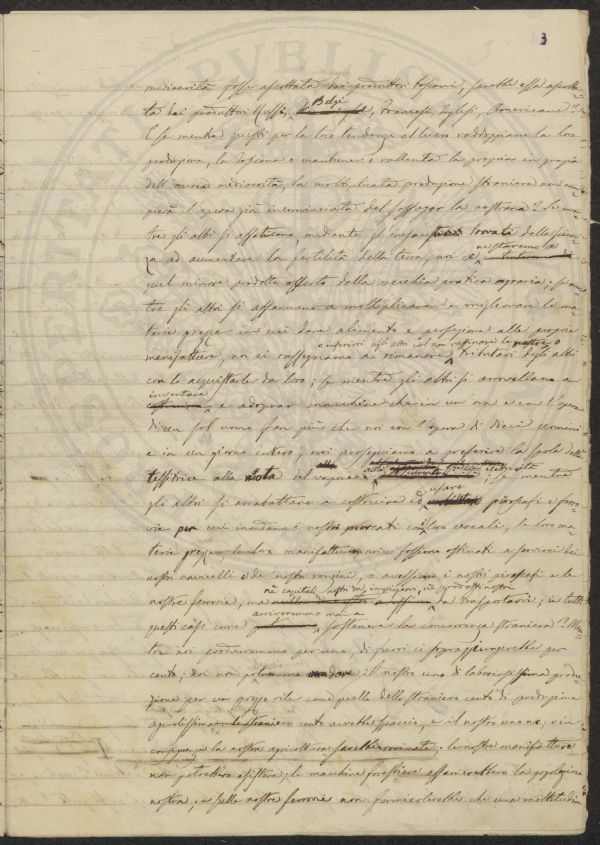 3
mediocrità fosse ascoltata dai produttori toscani, sarebbe essa ascolta-
ta dai produttori Russi, Belgi, Francesi, Inglesi, Americani?
E se mentre questi per la loro tendenza all' raddoppiano la loro
produzione, la Toscana o mantiene o rallenta la propria in grazia
dell'aurea mediocrità, la moltiplicata produzione straniera non com-
pierà l'opera già incominciata del soffogar la nostrana? Se men-
tre gli altri si affaticano, mediante gl' trovati della scien-
za ad aumentare la fertilità della terra, noi ci nostaremo a
quel minore prodotto offerto dalla vecchia pratica agraria; se men-
tre gli altri si affannano a moltiplicare e migliorare le ma-
terie gregge con cui dare alimento e perfezione alle proprie
o inferiori agli altri col non raffinare le nostre, o
manifatture, noi ci rassegniamo a rimanere tributari degli altri
con lo acquistarle da loro; se mentre gli altri si arrovellano a
inventare
e adoprar macchine che in un'ora e con l'opera
di un sol uomo fan più che noi con l'opera di dieci uomini
e in un giorno intero, noi proseguiamo a preferire la spola della
tessitrice alla ruota del vapore; se mentre
gli altri si arrabattano a costruire ed usare piroscafi e ferro-
vie per cui inondano i nostri mercati coi loro cereali, le loro ma-
terie gregge, le loro manifatture, noi ci fossimo ostinati a servirci dei
nostri navicelli e de' nostri ronzini, o avessimo i nostri piroscafi e le
nè capitali nostri da impiegarvi, nè prodotti nostri
nostre ferrovie, ma da trasportarvi; in tutti
arriveremmo mai a
questi casi come sostenere la concorrenza straniera? Men-
tre noi produrremmo per uno, di fuori ci si produrrebbe per
cento; noi non potremmo dare il nostro uno di laboriosissima produ-
zione per un prezzo vile come quello dello straniero cento di produzione
agevolissima: lo straniero cento avrebbe spaccio, e il nostro uno no, e in
conseguenza la nostra agricoltura sarebbe rovinata; le nostre manifatture
non potrebbero esistere; le macchine forestiere affamerebbero la popolazione
nostra, e sulle nostre ferrovie non formicolerebbe che una moltitudine